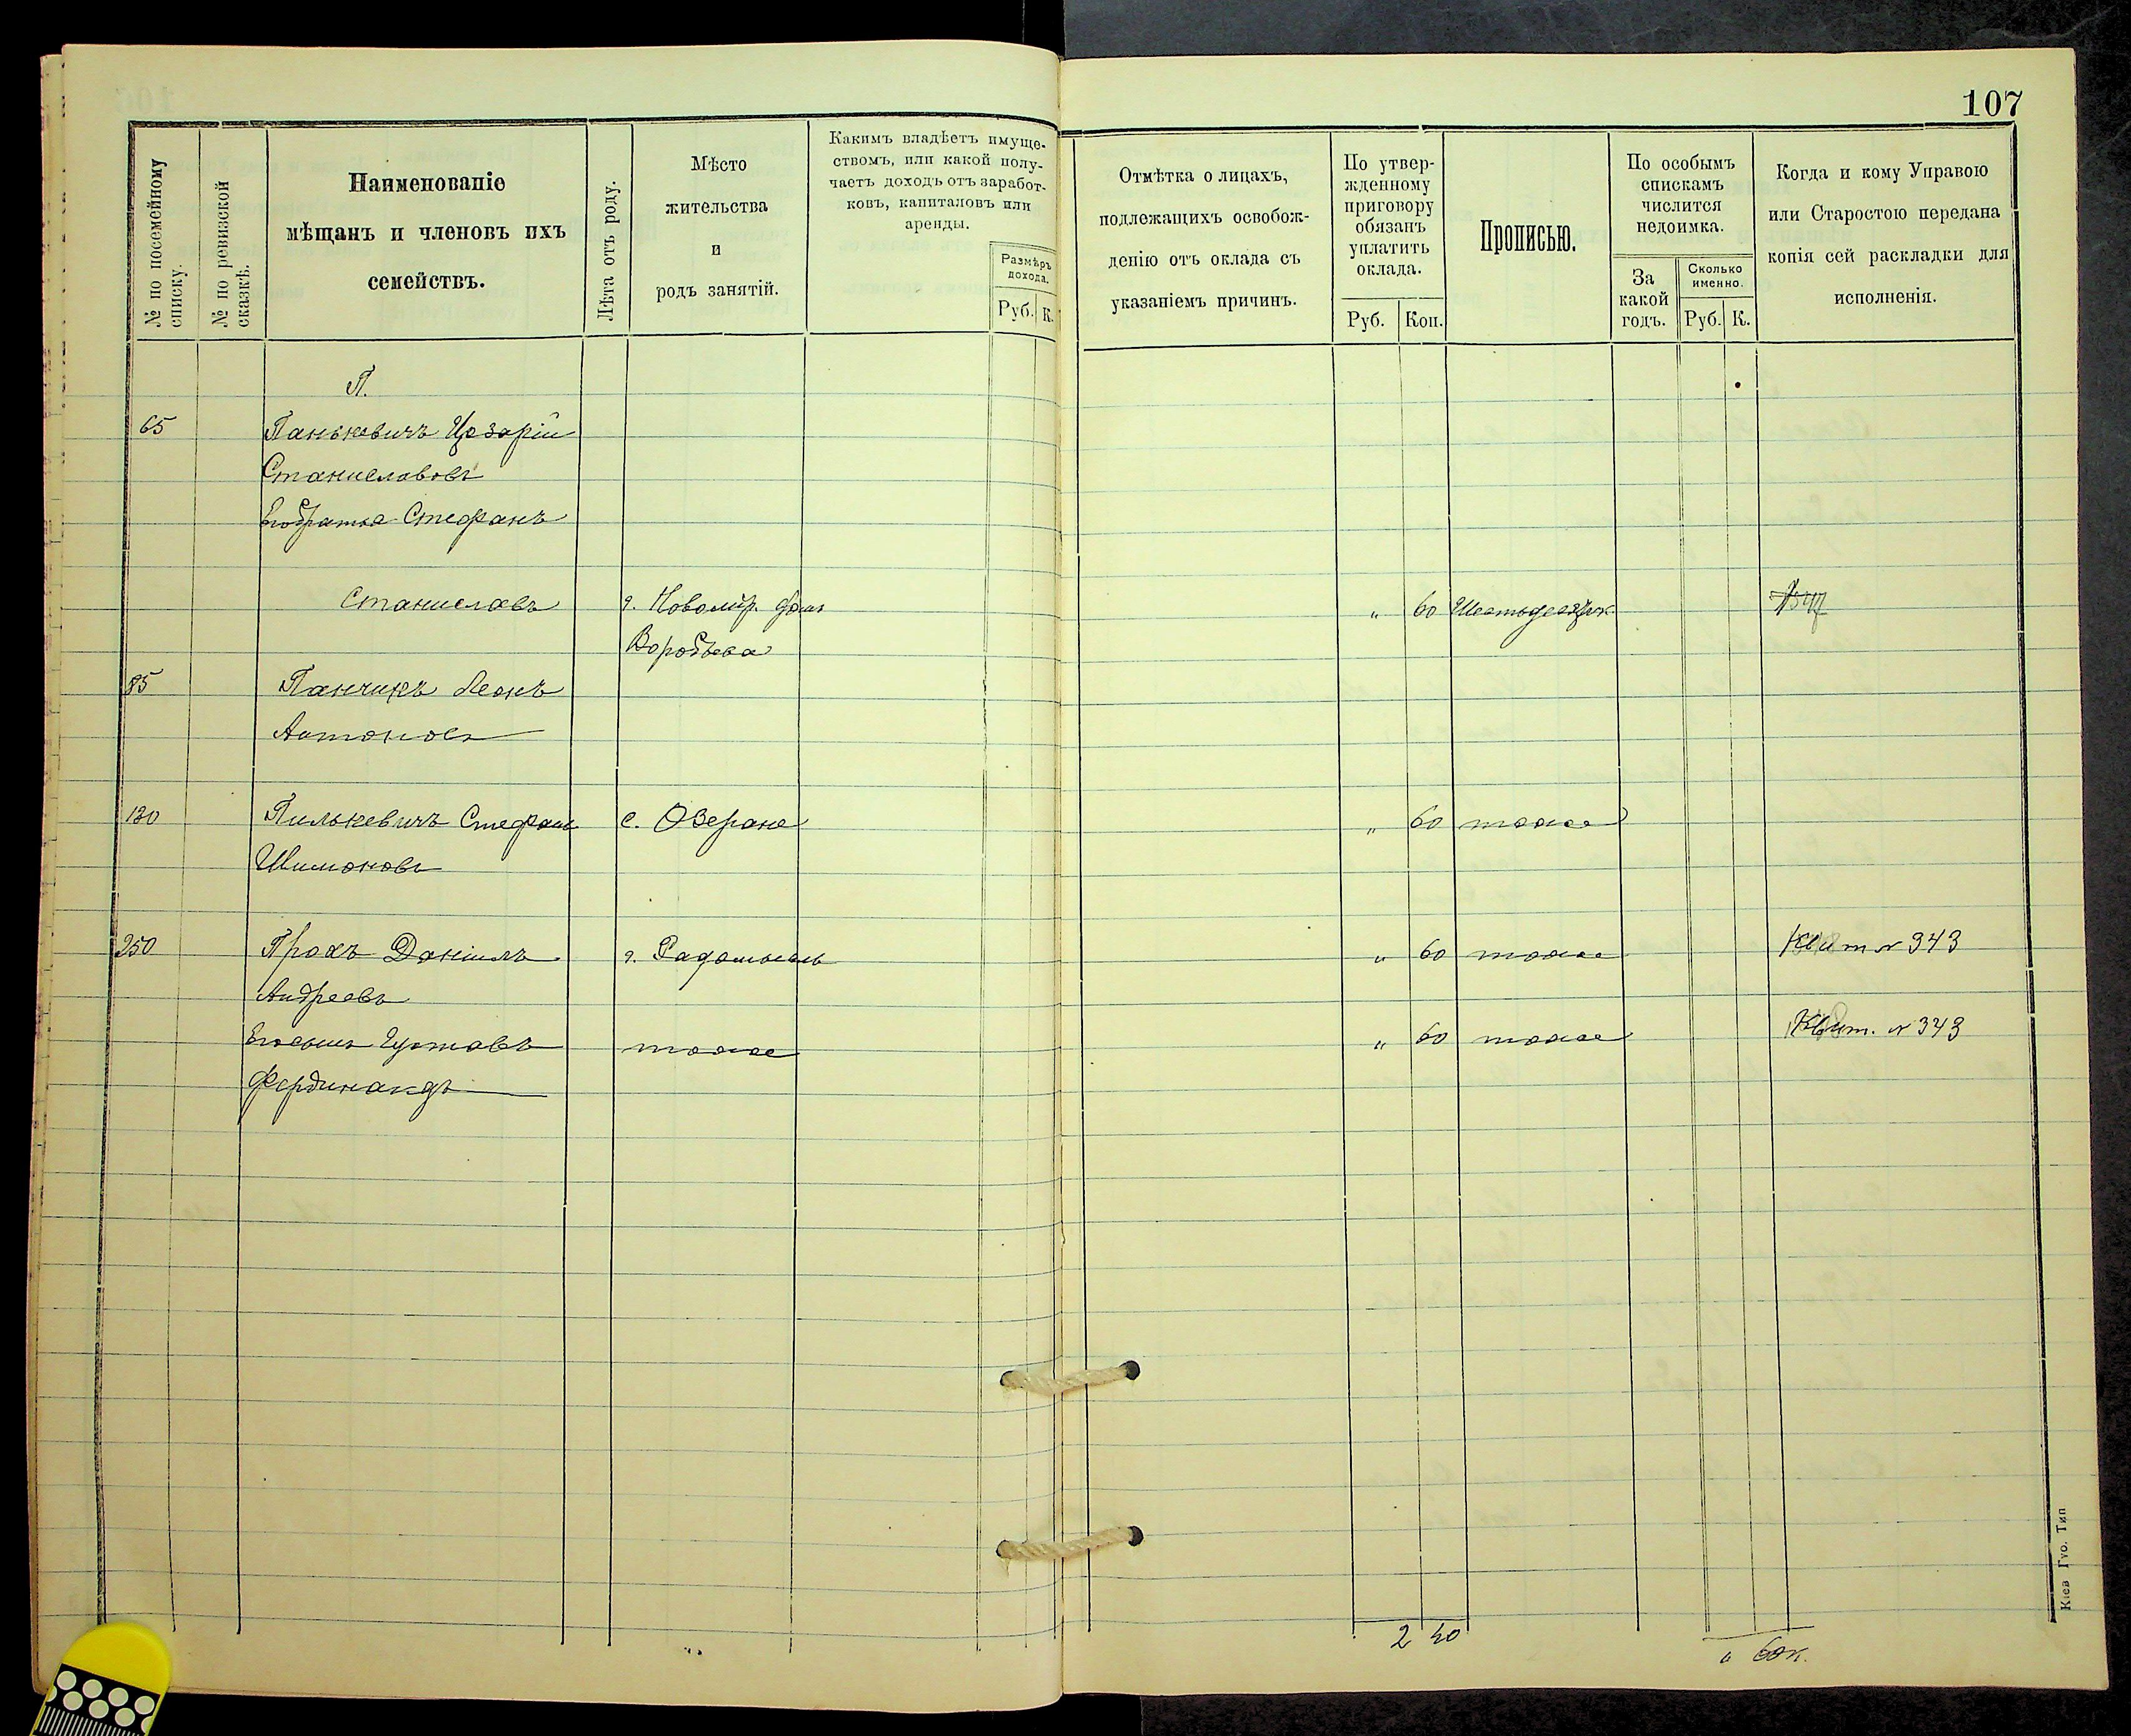 107
№ по посемейному
списку.
№ по ревизской
сказкѣ.
Наименованіе
мѣщанъ и членовъ ихъ
семействъ.
Лѣта отъ роду.
Мѣсто
жительства
и
родъ занятій.
Какимъ владѣетъ имуще-
ствомъ, или какой полу-
чаетъ доходъ отъ заработ-
ковъ, капиталовъ или
аренды.
Размѣръ
дохода.
Руб. К.
Отмѣтка о лицахъ,
подлежащихъ освобож-
денію отъ оклада съ
указаніемъ причинъ.
По утвер-
жденному
приговору
обязанъ
уплатить
оклада.
Руб. Коп.
Прописью.
По особымъ
спискамъ
числится
недоимка.
За
какой
годъ.
Сколько
именно.
Руб. К.
Когда и кому Управою
или Старостою передана
копія сей раскладки для
исполненія.
П.
65 Панькевичъ Цезарій
Станиславовъ
Его братья Стефанъ
Станиславъ г. Новомир. домъ „ 60 Шестьдесят к
Воробьева
85 Панчукъ Леонъ
Антоновъ
130 Пилькевичъ Стефанъ с. Озеране „ 60 тоже
Шимоновъ
250 Прохъ Даніилъ г. Радомысль „ 60 тоже Квит № 343
Андреевъ
Его сынъ Густавъ тоже „ 60 тоже Квит. № 343
Фердинандъ
2 40
„ 60к.
Кіев Губ. Тип